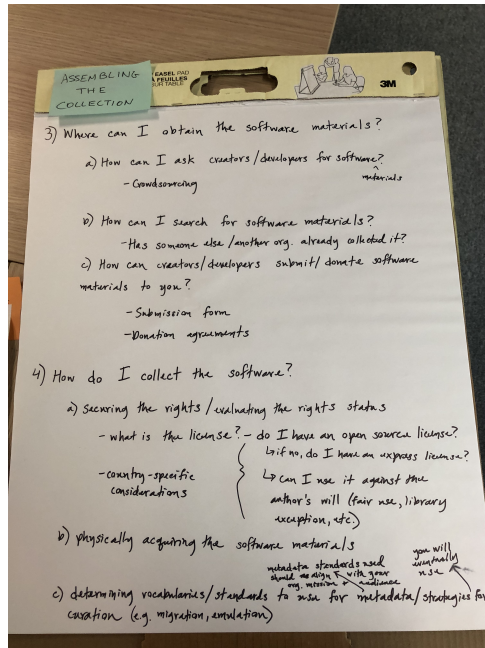 ASSEMBLING
THE
COLLECTION
EASEL PAD
À FEUILLES
OUR TABLE
3M
3) Where can I obtain the software materials?
a) How can I ask creators/developers for software?
^ materials
- Crowdsourcing
b) How can I search for software materials?
- Has someone else/another org. already collected it?
c) How can creators/developers submit/donate software
materials to you?
- Submission form
- Donation agreements
4) How do I collect the software?
a) Securing the rights/evaluating the rights status
- what is the license? - do I have an open source license?
↳ if no, do I have an express license?
- country-specific
considerations
↳ can I use it against the
author's will (fair use, library
exception, etc.)
b) physically acquiring the software materials
you will
eventually
use
metadata standards used
should align with your
org. mission + audience
c) determining vocabularies/standards to use for metadata/strategies for
curation (e.g. migration, emulation)